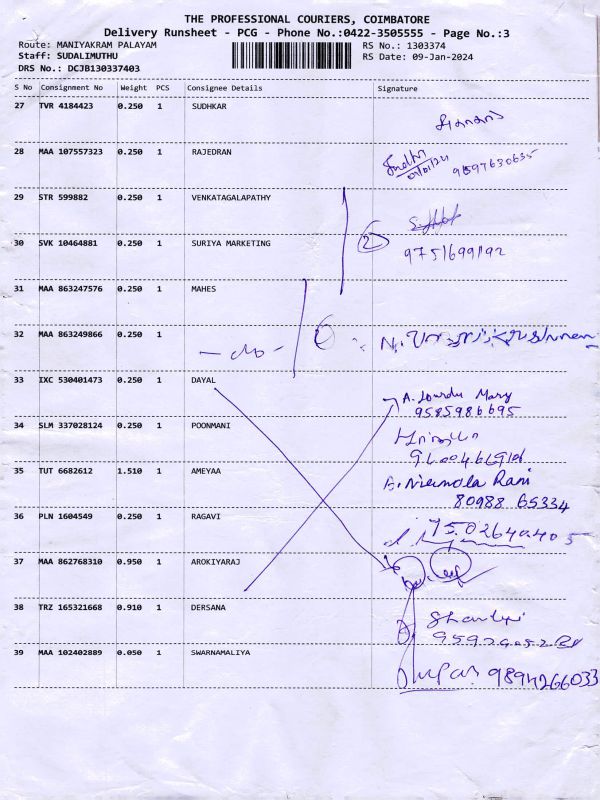 THE PROFESSIONAL COURIERS, COIMBATORE
Delivery Runsheet - PCG - Phone No.:0422-3505555 - Page No.:3
Route: MANIYAKRAM PALAYAM
Staff: SUDALIMUTHU
DRS No.: DCJB130337403
RS No.: 1303374
RS Date: 09-Jan-2024
S No Consignment No Weight PCS Consignee Details Signature
27 TVR 4184423 0.250 1 SUDHKAR
28 MAA 107557323 0.250 1 RAJEDRAN
9597630635
29 STR 599882 0.250 1 VENKATAGALAPATHY
30 SVK 10464881 0.250 1 SURIYA MARKETING
2
9751699192
31 MAA 863247576 0.250 1 MAHES
32 MAA 863249866 0.250 1
33 IXC 530401473 0.250 1 DAYAL
A. Lourdu Mary
9585986695
34 SLM 337028124 0.250 1 POONMANI
35 TUT 6682612 1.510 1 AMEYAA
Rani
80988 65334
36 PLN 1604549 0.250 1 RAGAVI
7502640405
37 MAA 862768310 0.950 1 AROKIYARAJ
38 TRZ 165321668 0.910 1 DERSANA
39 MAA 102402889 0.050 1 SWARNAMALIYA
9894266033